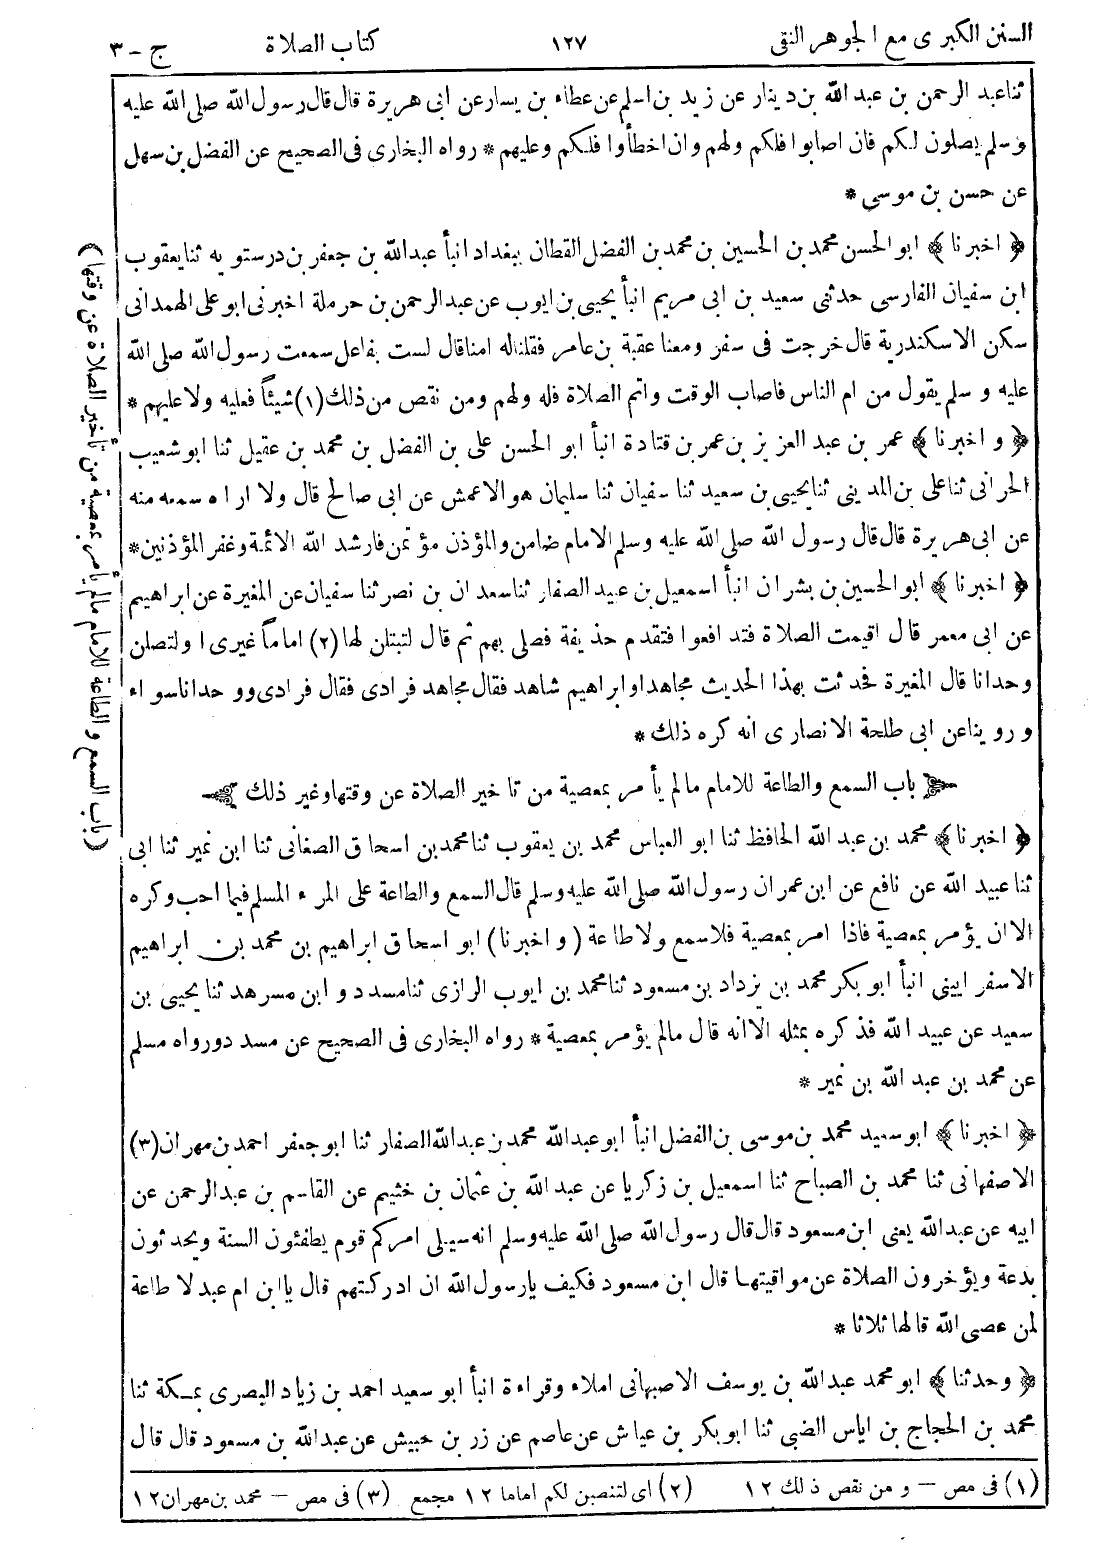 السنن الكبرى مع الجوهر النقى ١٢٧ كتاب الصلاة ج - ٣
ثنا عبد الرحمن بن عبد الله بن دينار عن زيد بن اسلم عن عطاء بن يسار عن ابى هريرة قال قال رسول الله صلى الله عليه
وسلم يصلون لكم فان اصابوا فلكم ولهم وان اخطأوا فلكم وعليهم * رواه البخارى فى الصحيح عن الفضل بن سهل
عن حسن بن موسى *
﴿ اخبرنا ﴾ ابو الحسن محمد بن الحسين بن محمد بن الفضل القطان ببغداد انبأ عبد الله بن جعفر بن درستويه ثنا يعقوب
ابن سفيان الفارسى حدثنى سعيد بن ابى مريم انبأ يحيى بن ايوب عن عبد الرحمن بن حرملة اخبرنى ابو على الهمدانى
سكن الاسكندرية قال خرجت فى سفر ومعنا عقبة بن عامر فقلنا له امنا قال لست بفاعل سمعت رسول الله صلى الله
عليه و سلم يقول من ام الناس فاصاب الوقت واتم الصلاة فله ولهم ومن نقص من ذلك (١) شيئاً فعليه ولا عليهم *
﴿ و اخبرنا ﴾ عمر بن عبد العزيز بن عمر بن قتادة انبأ ابو الحسن على بن الفضل بن محمد بن عقيل ثنا ابو شعيب
الحرانى ثنا على بن المدينى ثنا يحيى بن سعيد ثنا سفيان ثنا سليمان هو الاعمش عن ابى صالح قال ولا اراه سمعه منه
عن ابى هريرة قال قال رسول الله صلى الله عليه وسلم الامام ضامن والمؤذن مؤتمن فارشد الله الائمة وغفر المؤذنين *
﴿ اخبرنا ﴾ ابو الحسين بن بشران انبأ اسمعيل بن عبيد الصفار ثنا سعدان بن نصر ثنا سفيان عن المغيرة عن ابراهيم
عن ابى معمر قال اقيمت الصلاة فتدافعوا فتقدم حذيفة فصلى بهم ثم قال لتبتلن لها (٢) اماماً غيرى او لتصلن
وحدانا قال المغيرة فحدثت بهذا الحديث مجاهدا وابراهيم شاهد فقال مجاهد فرادى فقال فرادى ووحدانا سواء
وروينا عن ابى طلحة الانصارى انه كره ذلك *
باب السمع والطاعة للامام مالم يأمر بمعصية من تاخير الصلاة عن وقتها وغير ذلك
﴿ اخبرنا ﴾ محمد بن عبد الله الحافظ ثنا ابو العباس محمد بن يعقوب ثنا محمد بن اسحاق الصغانى ثنا ابن نمير ثنا ابى
ثنا عبيد الله عن نافع عن ابن عمر ان رسول الله صلى الله عليه وسلم قال السمع والطاعة على المرء المسلم فيما احب وكره
الا ان يؤمر بمعصية فاذا امر بمعصية فلا سمع ولا طاعة ( و اخبرنا ) ابو اسحاق ابراهيم بن محمد بن ابراهيم
الاسفرايينى انبأ ابو بكر محمد بن يزداد بن مسعود ثنا محمد بن ايوب الرازى ثنا مسدد و ابن مسرهد ثنا يحيى بن
سعيد عن عبيد الله فذكره بمثله الا انه قال مالم يؤمر بمعصية * رواه البخارى فى الصحيح عن مسدد ورواه مسلم
عن محمد بن عبد الله بن نمير *
﴿ اخبرنا ﴾ ابو سعيد محمد بن موسى بن الفضل انبأ ابو عبد الله محمد بن عبد الله الصفار ثنا ابو جعفر احمد بن مهران (٣)
الاصفهانى ثنا محمد بن الصباح ثنا اسمعيل بن زكريا عن عبد الله بن عثمان بن خثيم عن القاسم بن عبد الرحمن عن
ابيه عن عبد الله يعنى ابن مسعود قال قال رسول الله صلى الله عليه وسلم انه سيلى امركم قوم يطفئون السنة ويحدثون
بدعة ويؤخرون الصلاة عن مواقيتها قال ابن مسعود فكيف يا رسول الله ان ادركتهم قال يا ابن ام عبد لا طاعة
لمن عصى الله قالها ثلاثا *
﴿ وحدثنا ﴾ ابو محمد عبد الله بن يوسف الاصبهانى املاء وقراءة انبأ ابو سعيد احمد بن زياد البصرى بمكة ثنا
محمد بن الحجاج بن اياس الضبى ثنا ابو بكر بن عياش عن عاصم عن زر بن حبيش عن عبد الله بن مسعود قال قال
(١) فى مص – و من نقص ذلك ١٢ (٢) اى لتنصبن لكم اماما ١٢ مجمع (٣) فى مص – محمد بن مهران ١٢
(باب السمع و الطاعة للامام مالم يأمر بمعصية من تأخير الصلاة عن وقتها)